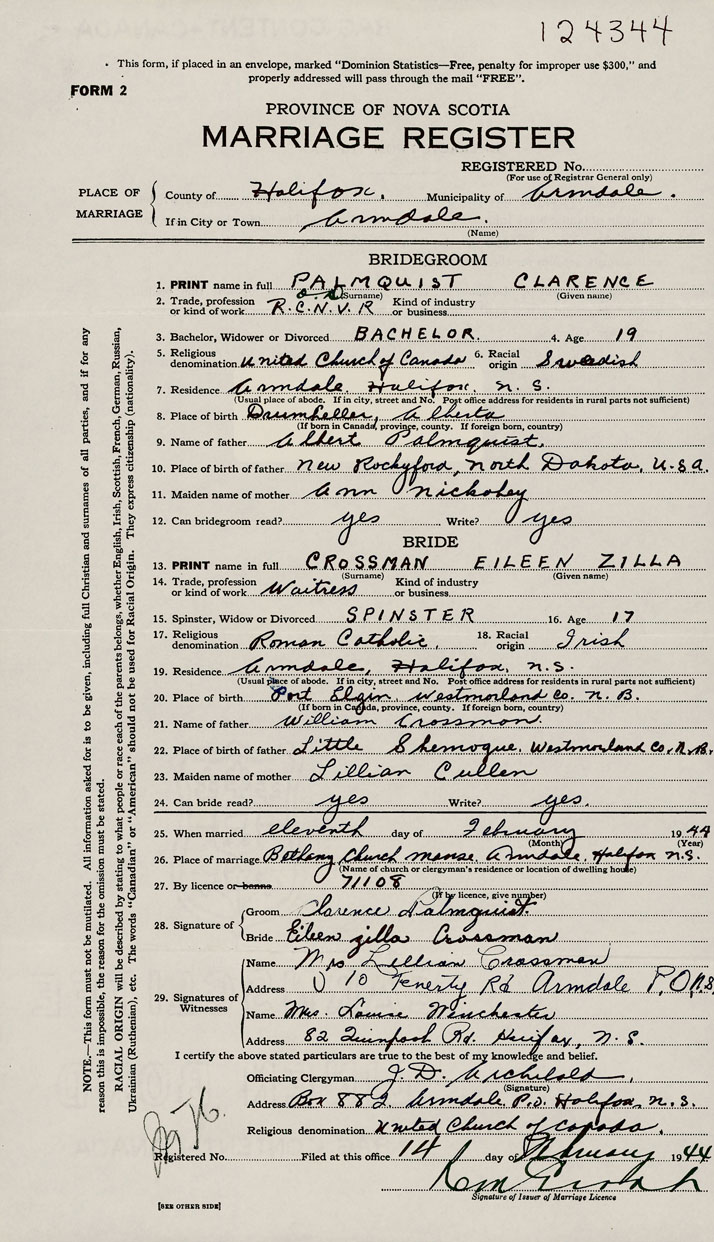 124344
· This form, if placed in an envelope, marked "Dominion Statistics—Free, penalty for improper use $300," and
properly addressed will pass through the mail "FREE".
FORM 2
PROVINCE OF NOVA SCOTIA
MARRIAGE REGISTER
REGISTERED No.
(For use of Registrar General only)
PLACE OF MARRIAGE
County of Halifax. Municipality of Armdale.
If in City or Town Armdale.
(Name)
BRIDEGROOM
1. PRINT name in full PALMQUIST CLARENCE
(Surname) (Given name)
2. Trade, profession or kind of work R.C.N.V.R Kind of industry or business
3. Bachelor, Widower or Divorced BACHELOR. 4. Age 19
5. Religious denomination United Church of Canada 6. Racial origin Swedish
7. Residence Armdale, Halifax, N. S.
(Usual place of abode. If in city, street and No. Post office address for residents in rural parts not sufficient)
8. Place of birth Drumheller, Alberta
(If born in Canada, province, county. If foreign born, country)
9. Name of father Albert Palmquist.
10. Place of birth of father New Rockyford, North Dakota, U.S.A.
11. Maiden name of mother Ann
12. Can bridegroom read? yes Write? yes
BRIDE
13. PRINT name in full CROSSMAN EILEEN ZILLA
(Surname) (Given name)
14. Trade, profession or kind of work Waitress Kind of industry or business
15. Spinster, Widow or Divorced SPINSTER 16. Age 17
17. Religious denomination Roman Catholic. 18. Racial origin Irish
19. Residence Armdale, Halifax, N.S.
(Usual place of abode. If in city, street and No. Post office address for residents in rural parts not sufficient)
20. Place of birth Port Elgin Westmorland Co. N. B.
(If born in Canada, province, county. If foreign born, country)
21. Name of father William Crossman
22. Place of birth of father Little Shemogue, Westmorland Co., N.B.
23. Maiden name of mother Lillian Cullen
24. Can bride read? yes Write? yes.
25. When married eleventh day of February 1944
(Month) (Year)
26. Place of marriage Bethany Church manse, Armdale, Halifax N.S.
(Name of church or clergyman's residence or location of dwelling house)
27. By licence or banns 71108
(If by licence, give number)
28. Signature of
Groom Clarence Palmquist.
Bride Eileen Zilla Crossman
29. Signatures of Witnesses
Name Mrs Lillian Crossman
Address 10 Fenerty Rd Armdale P.O. N.S.
Name Mrs. Louise Winchester
Address 82 Quinpool Rd. Halifax, N. S.
I certify the above stated particulars are true to the best of my knowledge and belief.
Officiating Clergyman J. D. Archibald.
(Signature)
Address Box 882 Armdale P.O. Halifax, N. S.
Religious denomination United Church of Canada.
Registered No. Filed at this office 14 day of February 1944
Signature of Issuer of Marriage Licence
[SEE OTHER SIDE]
NOTE.—This form must not be mutilated. All information asked for is to be given, including full Christian and surnames of all parties, and if for any
reason this is impossible, the reason for the omission must be stated.
RACIAL ORIGIN will be described by stating to what people or race each of the parents belongs, whether English, Irish, Scottish, French, German, Russian,
Ukrainian (Ruthenian), etc. The words "Canadian" or "American" should not be used for Racial Origin. They express citizenship (nationality).